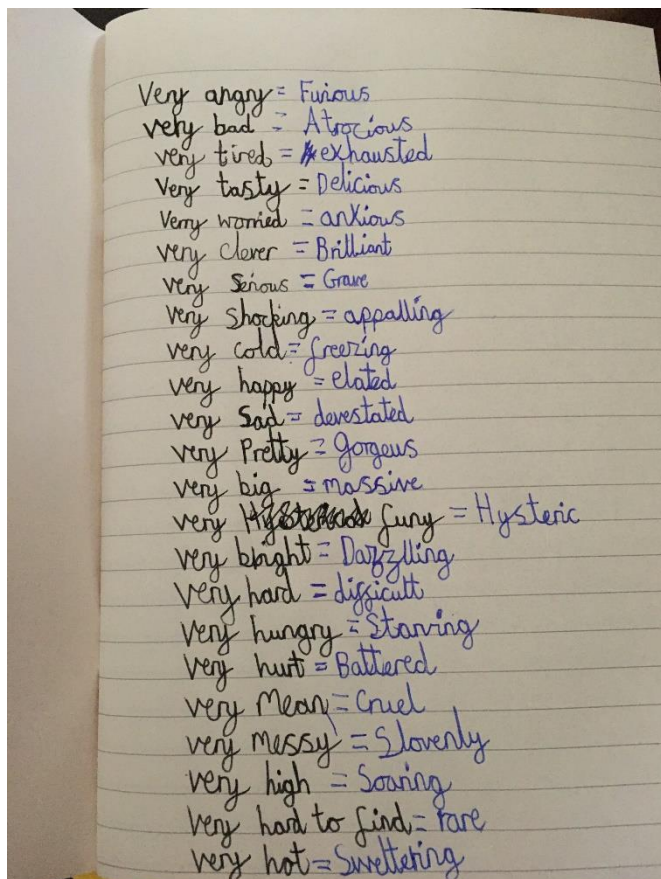 Very angry = Furious
very bad = Atrocious
very tired = exhausted
Very tasty = Delicious
Verry worried = anxious
very clever = Brilliant
very Serious = Grave
very shocking = appalling
very cold = freezing
very happy = elated
very Sad = devestated
very Pretty = gorgeus
very big = massive
very funy = Hysteric
very bright = Dazzlling
very hard = difficult
very hungry = Starving
very hurt = Battered
very Mean = Cruel
very messy = Slovenly
very high = Soaring
very hard to find = rare
very hot = Sweltering